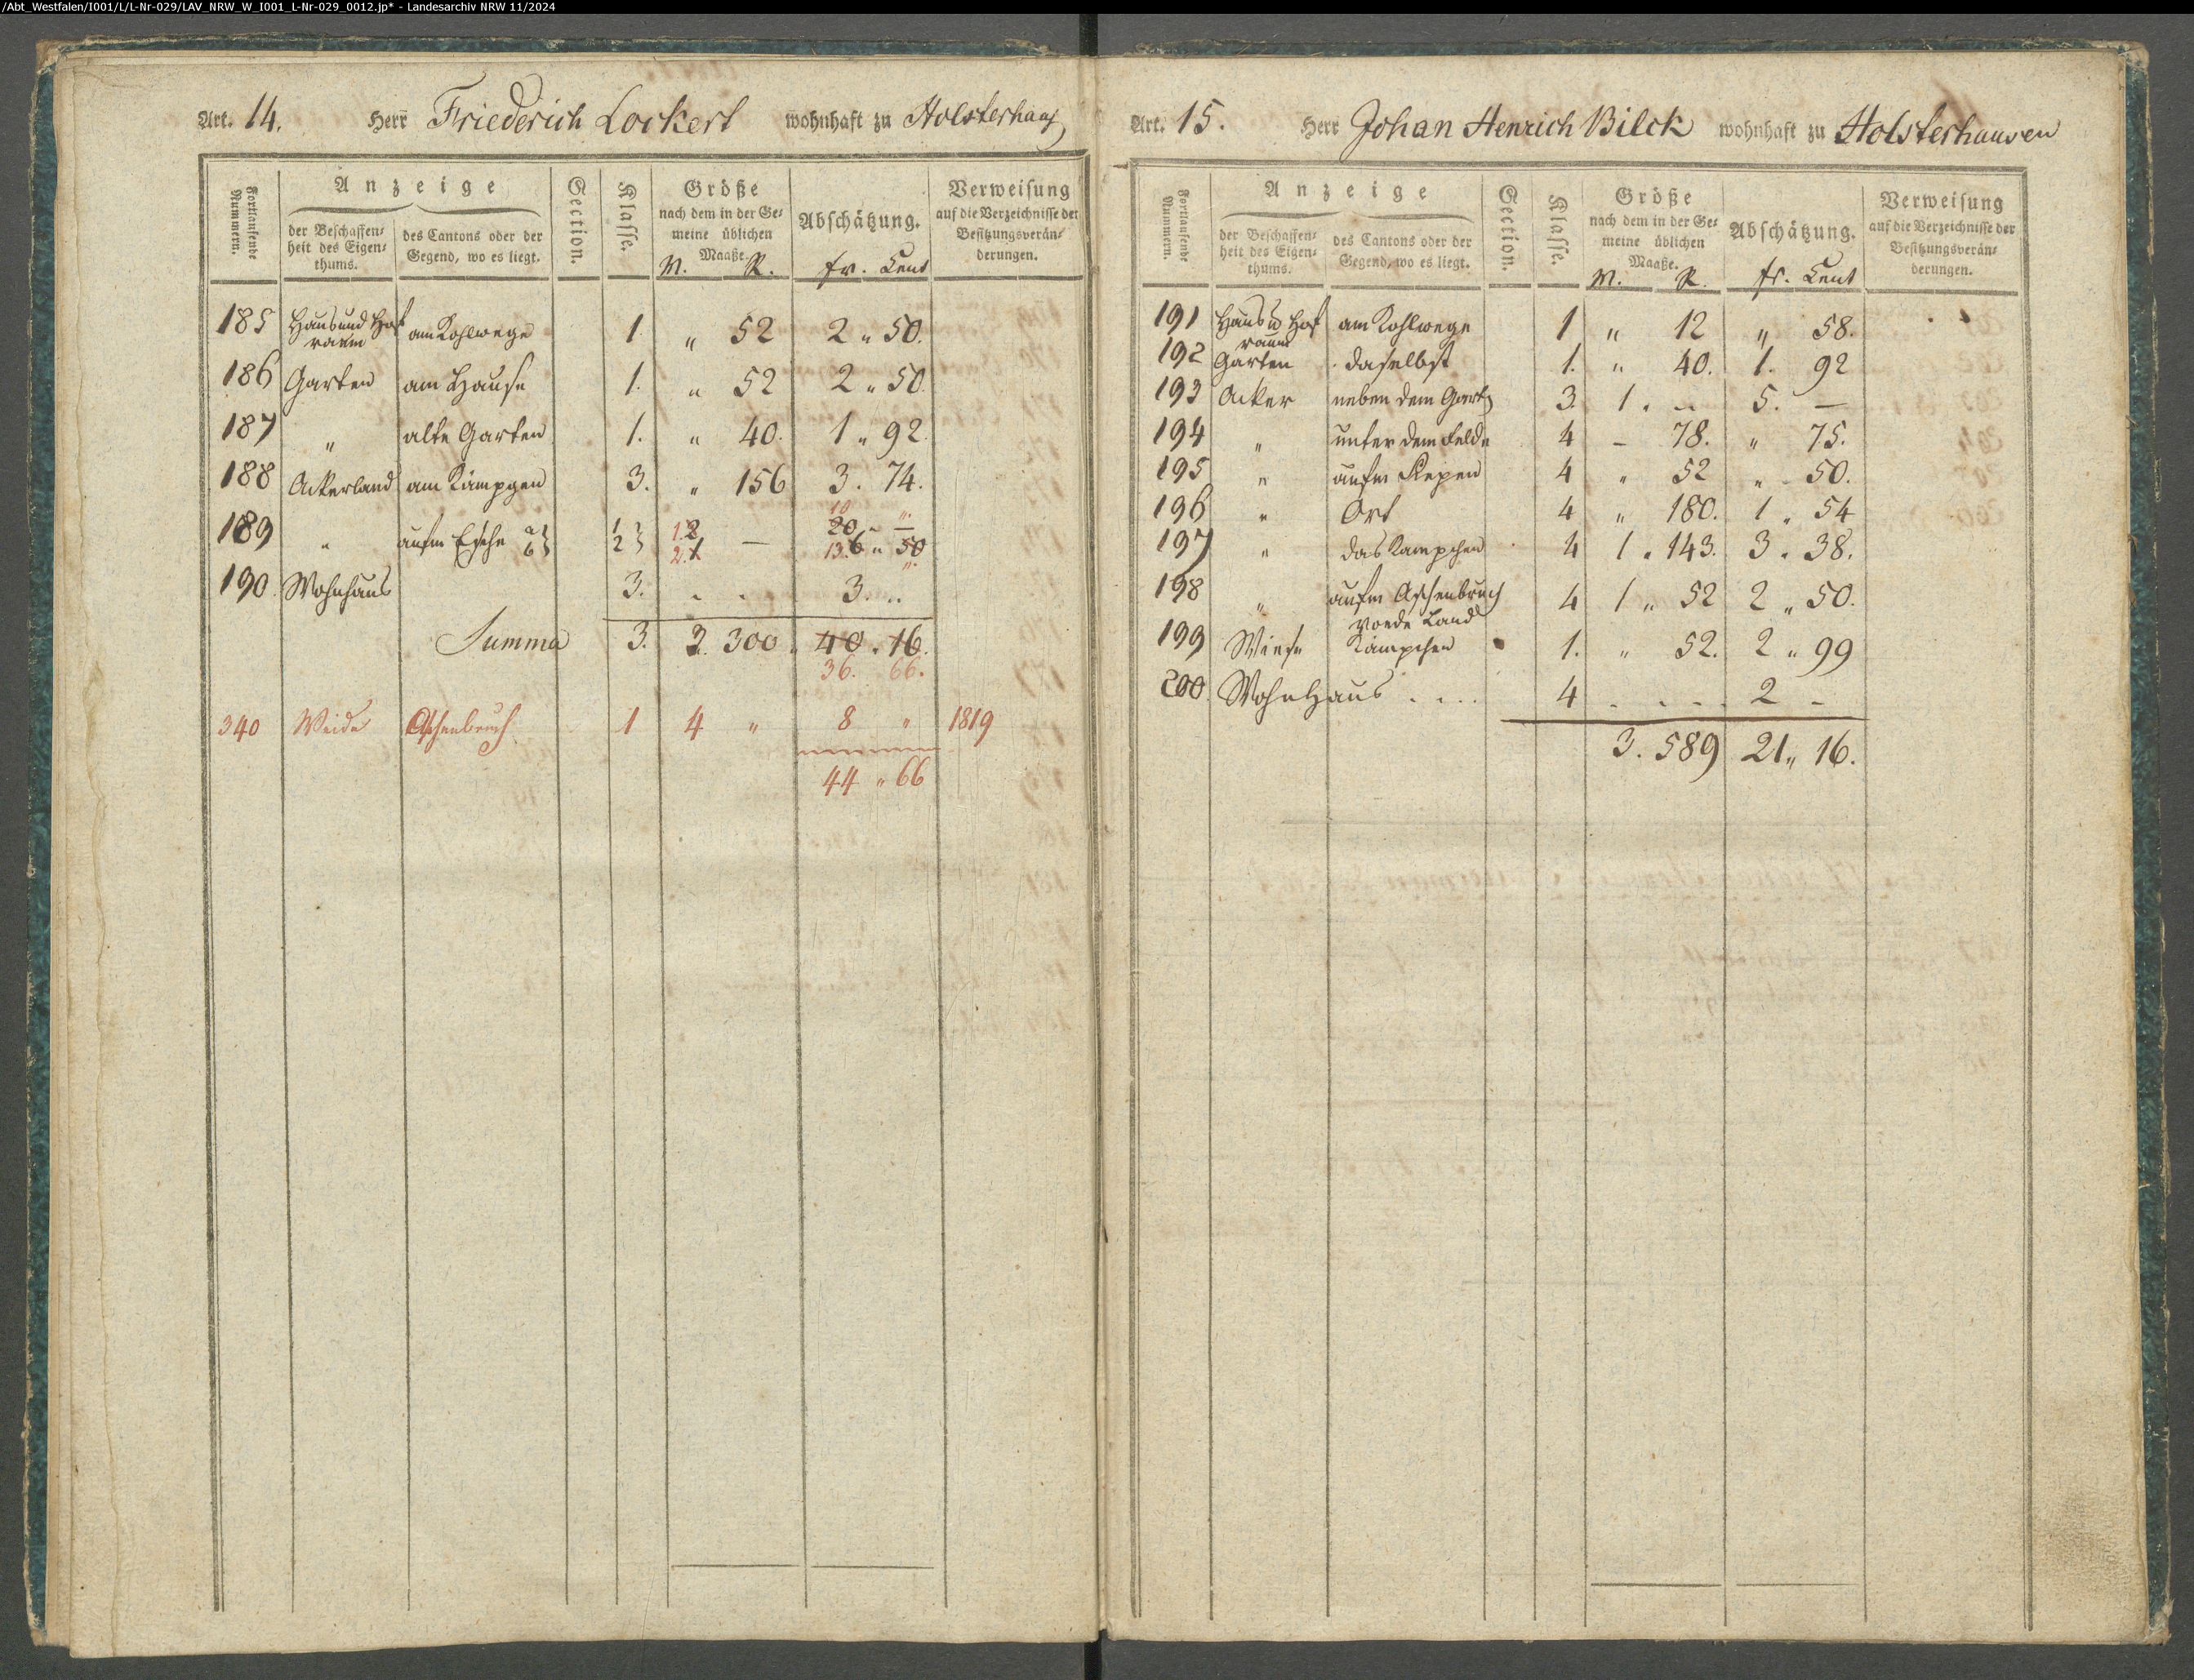 /Abt_Westfalen/I001/L/L-Nr-029/LAV_NRW_W_I001_L-Nr-029_0012.jp* - Landesarchiv NRW 11/2024
Art. 14. Herr Friederich Lockert wohnhaft zu Holsterhaus
Fortlaufende Nummern.
Anzeige
der Beschaffen-
heit des Eigen-
thums.
des Cantons oder der
Gegend, wo es liegt.
Section.
Klasse.
Größe
nach dem in der Ge-
meine üblichen
Maaße.
M. R.
Abschätzung.
fr. Cent
Verweisung
auf die Verzeichnisse der
Besitzungsverän-
derungen.
185 Haus und Hof raum am Kohlwege 1. „ 52 2 „ 50.
186 Garten am Hause 1. „ 52 2 „ 50
187 „ alte Garten 1. „ 40. 1 „ 92.
188 Ackerland am Kämpgen 3. „ 156 3. 74.
189 „ aufm Esche a} 1} 1. 2 — 20 „ — 10 „
b} 2} 2. 1 13. 6 „ 50 „
190. Wohnhaus 3. . . 3. ..
Summa 3. 3. 300. 40. 16.
36. 66.
340 Weide Aschenbruch 1 4 „ 8 „ 1819
44 „ 66
Art. 15. Herr Johan Henrich Bilck wohnhaft zu Holsterhausen
Fortlaufende Nummern.
Anzeige
der Beschaffen-
heit des Eigen-
thums.
des Cantons oder der
Gegend, wo es liegt.
Section.
Klasse.
Größe
nach dem in der Ge-
meine üblichen
Maaße.
M. R.
Abschätzung.
fr. Cent
Verweisung
auf die Verzeichnisse der
Besitzungsverän-
derungen.
191 Haus u Hof raum am Kohlwege 1 „ 12 „ 58.
192 Garten daselbst 1. „ 40. 1. 92
193 Acker neben dem Gart 3. 1. .. 5. —
194 „ unter dem Felde 4 – 78. „ 75.
195 „ aufm 4 „ 52 „ 50.
196 „ Ort 4 „ 180. 1 „ 54
197 „ das Kämpchen 4 1. 143. 3. 38.
198 „ aufm Aschenbruch 4 1 „ 52 2 „ 50.
Land
199 Wiese Kämpchen 1. „ 52. 2 „ 99
200. Wohnhaus .... 4 . . . . 2 –
3. 589 21 „ 16.